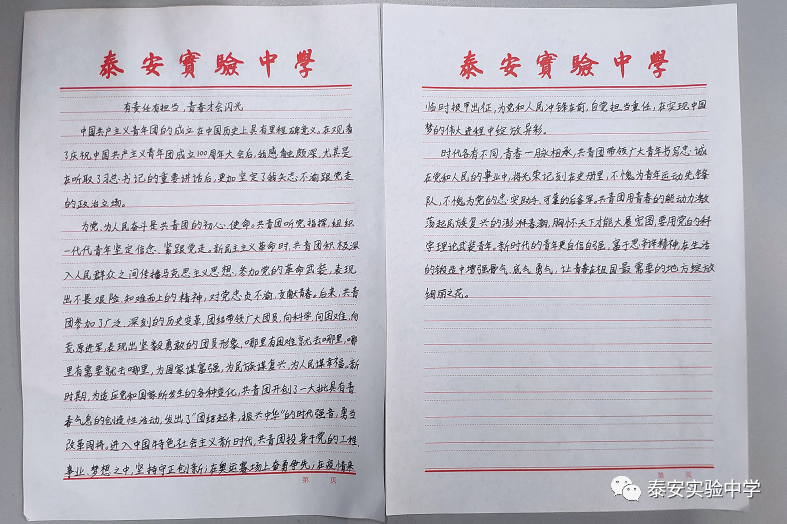 泰安實驗中學
有责任有担当，青春才会闪光
中国共产主义青年团的成立在中国历史上具有里程碑意义。在观看
了庆祝中国共产主义青年团成立100周年大会后，我感触颇深，尤其是
在听取了习总书记的重要讲话后，更加坚定了我矢志不渝跟党走
的政治立场。
为党、为人民奋斗是共青团的初心、使命。共青团听党指挥，组织
一代代青年坚定信念、紧跟党走。新民主主义革命时，共青团积极深
入人民群众之间传播马克思主义思想、参加党的革命武装，表现
出不畏艰险、知难而上的精神，对党忠贞不渝、贡献青春。后来，共青
团参加了广泛、深刻的历史变革，团结带领广大团员，向科学、向困难、向
荒原进军，表现出坚毅勇敢的团员形象，哪里有困难就去哪里，哪
里有需要就去哪里，为国家谋富强，为民族谋复兴，为人民谋幸福。新
时期，为适应党和国家所发生的各种变化，共青团开创了一大批具有青
春气息的创造性活动，发出了“团结起来，振兴中华”的时代强音，勇当
改革闯将。进入中国特色社会主义新时代，共青团投身于党的工程、
事业、梦想之中，坚持守正创新；在奥运赛场上奋勇争先；在疫情来
第 页
泰安實驗中學
临时披甲出征，为党和人民冲锋在前，自觉担当重任，在实现中国
梦的伟大进程中绽放异彩。
时代各有不同，青春一脉相承，共青团带领广大青年书写忠诚
在党和人民的事业中，将光荣记刻在史册里，不愧为青年运动先锋
队，不愧为党的忠实助手、可靠的后备军。共青团用青春的能动力激
荡起民族复兴的澎湃春潮，胸怀天下才能大展宏图，要用党的科
学理论武装青年。新时代的青年更自信自强、富于思辨精神，在生活
的锻造中增强骨气、底气、勇气，让青春在祖国最需要的地方绽放
绚丽之花。
第 页
泰安实验中学